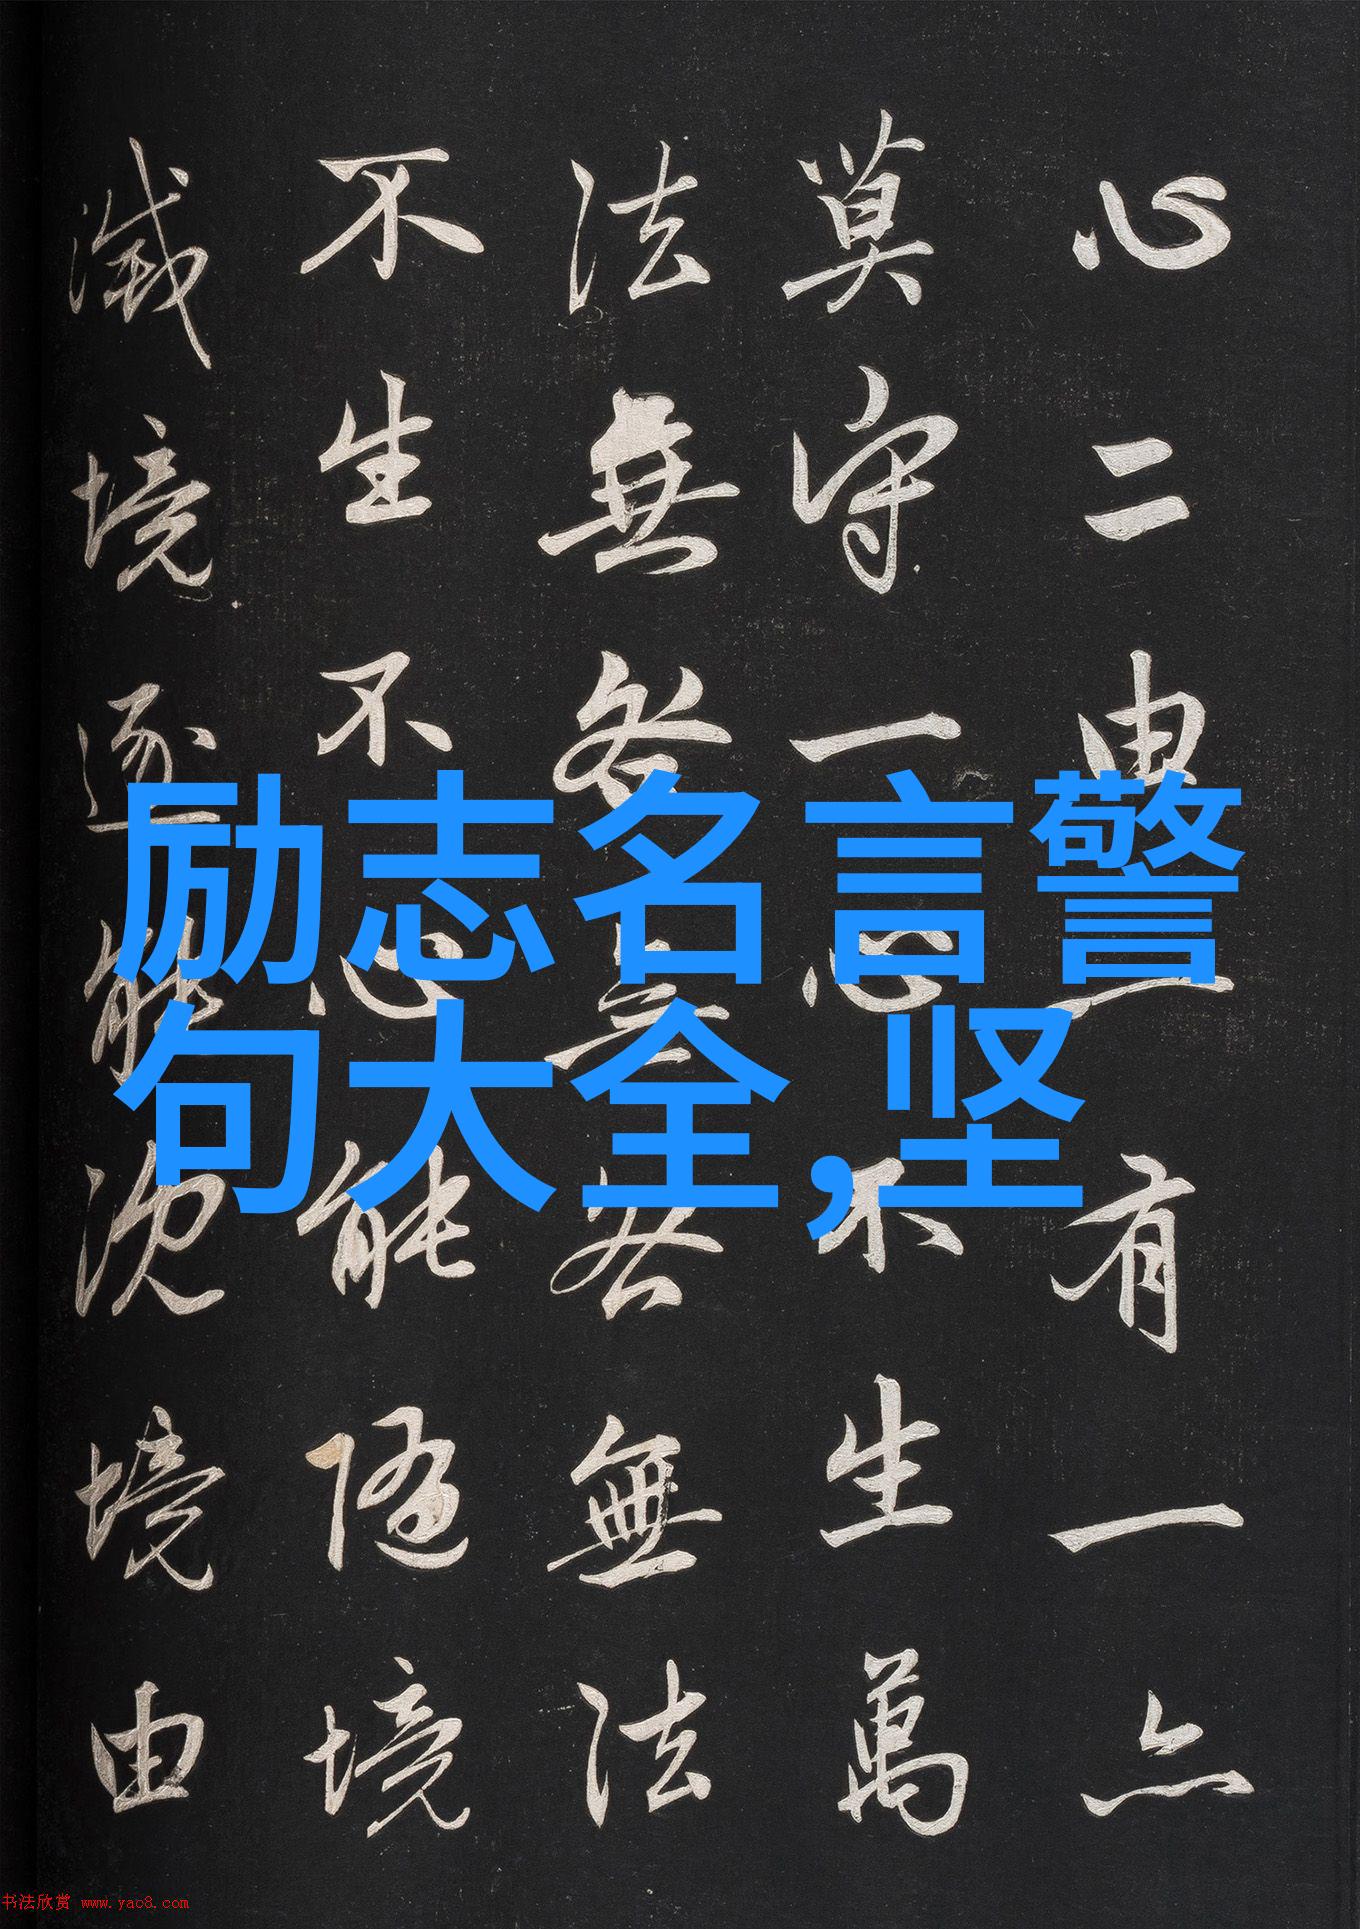 心二由一有一亦
莫守一心不生萬
法無咎無咎無法
不生不心能隨境
滅境逐能沉境由
励志名言警
句大全,坚
书法欣赏 www.yac8.com